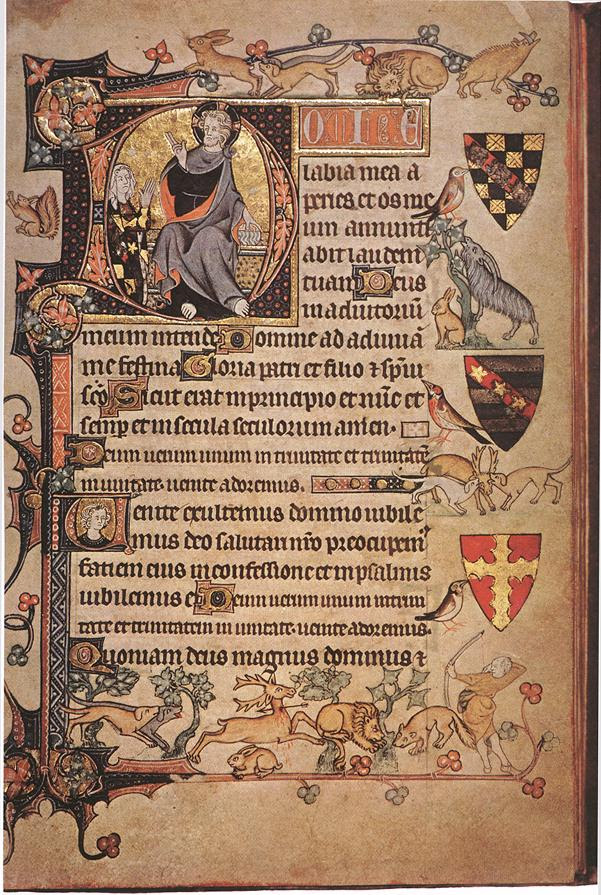 DOMINE
labia mea a
peries et os me
um annunti
abit laudem
tuam Deus
in adiutoriū
meum intende Domine ad adiuuā
me festina Gloria patri et filio ⁊ sp̄ui
sc̄o Sicut erat in principio et nūc et
semp̱ et in secula seculorum amen.
Deum uerum unum in trinitate et trinitatē
in unitate. uenite adoremus.
Uenite exultemus domino iubile
mus deo salutari nr̄o preocupem᷒
faciem eius in confessione et in psalmis
iubilemus ei Deum uerum unum in trini
tate et trinitatem in unitate. uenite adoremus.
Quoniam deus magnus dominus ⁊